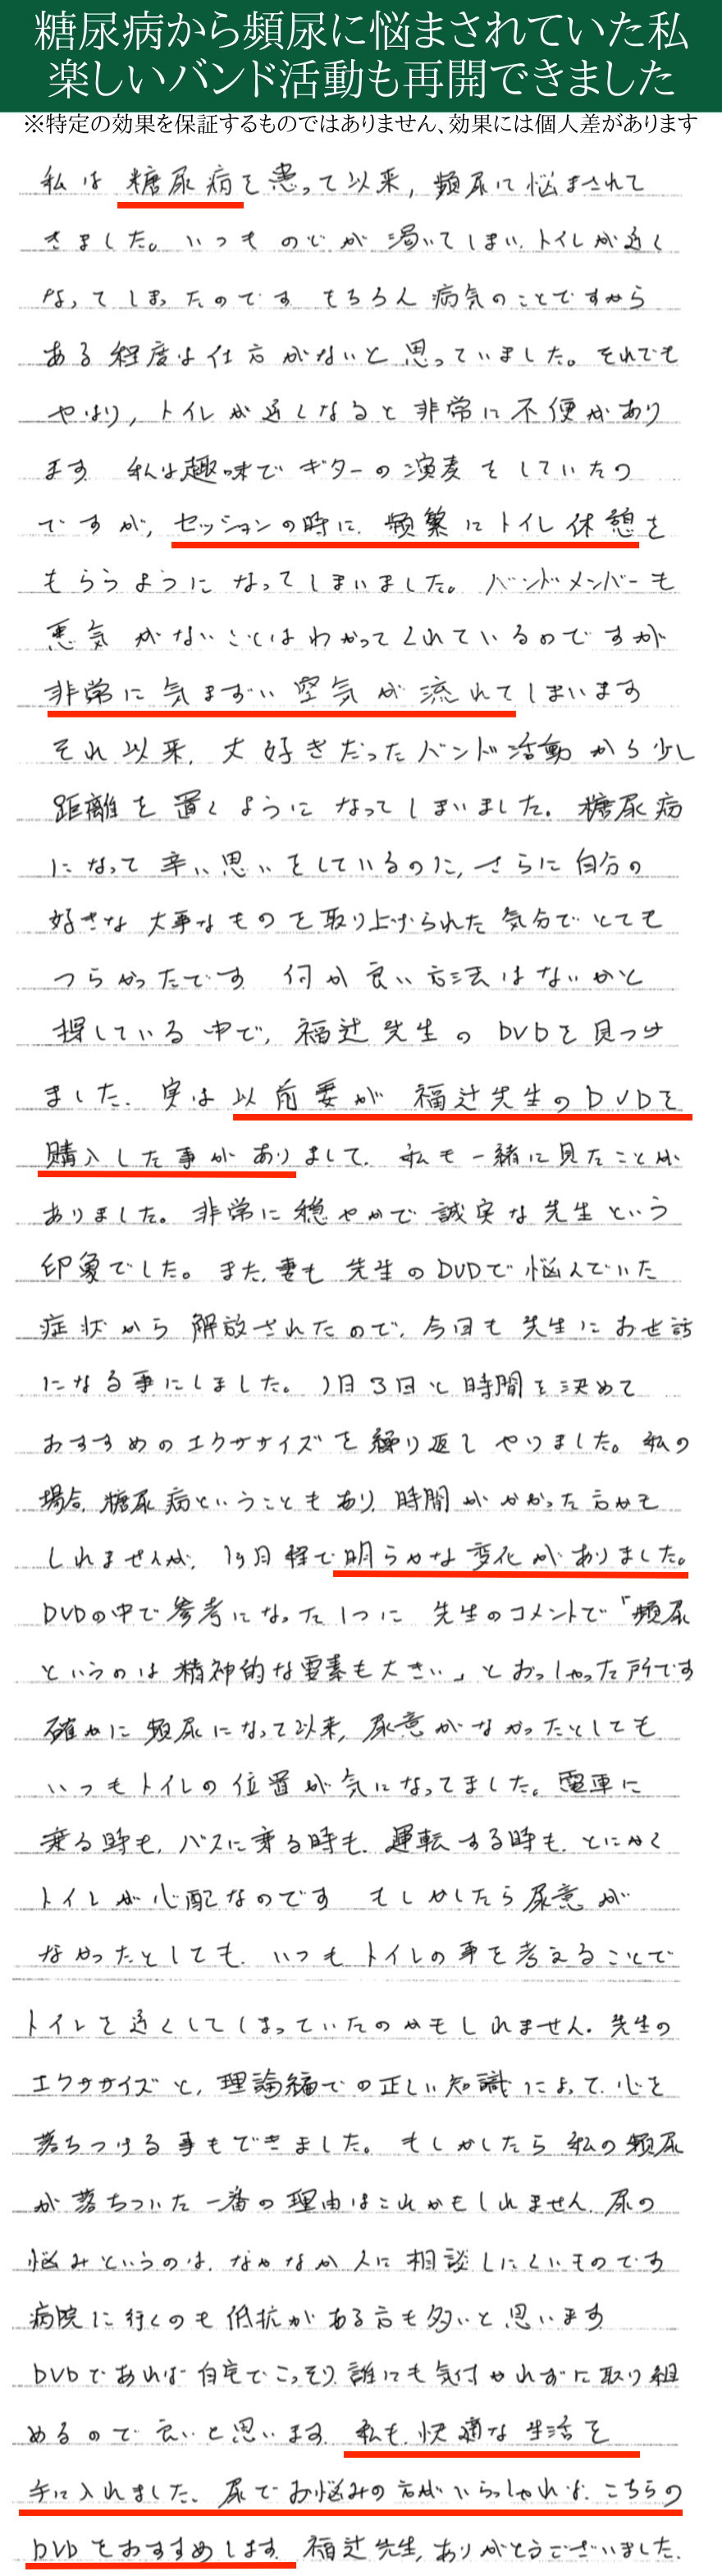 糖尿病から頻尿に悩まされていた私
楽しいバンド活動も再開できました
※特定の効果を保証するものではありません、効果には個人差があります
私は糖尿病を患って以来,頻尿に悩まされて
きました。いつものどが渇いてしまい、トイレが近く
なってしまったのです もちろん病気のことですから
ある程度は仕方がないと思っていました。それでも
やはり,トイレが近くなると非常に不便があり
ます 私は趣味でギターの演奏をしていたの
ですが,セッションの時に、頻繁にトイレ休憩を
もらうようになってしまいました。バンドメンバーも
悪気がないことはわかってくれているのですが
非常に気まずい空気が流れてしまいます
それ以来、大好きだったバンド活動から少し
距離を置くようになってしまいました。糖尿病
になって辛い思いをしているのに,さらに自分の
好きな大事なものを取り上げられた気分でとても
つらかったです 何か良い方法はないかと
探している中で,福辻先生のDVDを見つけ
ました、実は以前妻が福辻先生のDVDを
購入した事がありまして、私も一緒に見たことが
ありました。非常に穏やかで誠実な先生という
印象でした。また、妻も先生のDVDで悩んでいた
症状から解放されたので、今回も先生にお世話
になる事にしました。1日3回と時間を決めて
おすすめのエクササイズを繰り返しやりました。私の
場合、糖尿病ということもあり、時間がかかった方かも
しれませんが、1ヶ月程で明らかな変化がありました。
DVDの中で参考になった1つに 先生のコメントで「頻尿
というのは精神的な要素も大きい」とおっしゃった所です
確かに頻尿になって以来,尿意がなかったとしても
いつもトイレの位置が気になってました。電車に
乗る時も、バスに乗る時も、運転する時も、とにかく
トイレが心配なのです もしかしたら尿意が
なかったとしても、いつもトイレの事を考えることで
トイレを近くしてしまっていたのかもしれません、先生の
エクササイズと,理論編での正しい知識によって、心を
落ちつける事もできました。もしかしたら私の頻尿
が落ちついた一番の理由はこれかもしれません、尿の
悩みというのは、なかなか人に相談しにくいものです
病院に行くのも抵抗がある方も多いと思います
DVDであれば自宅でこっそり誰にも気付かれずに取り組
めるので良いと思います、私も、快適な生活を
手に入れました、尿でお悩みの方がいらっしゃれば、こちらの
DVDをおすすめします、福辻先生,ありがとうございました、